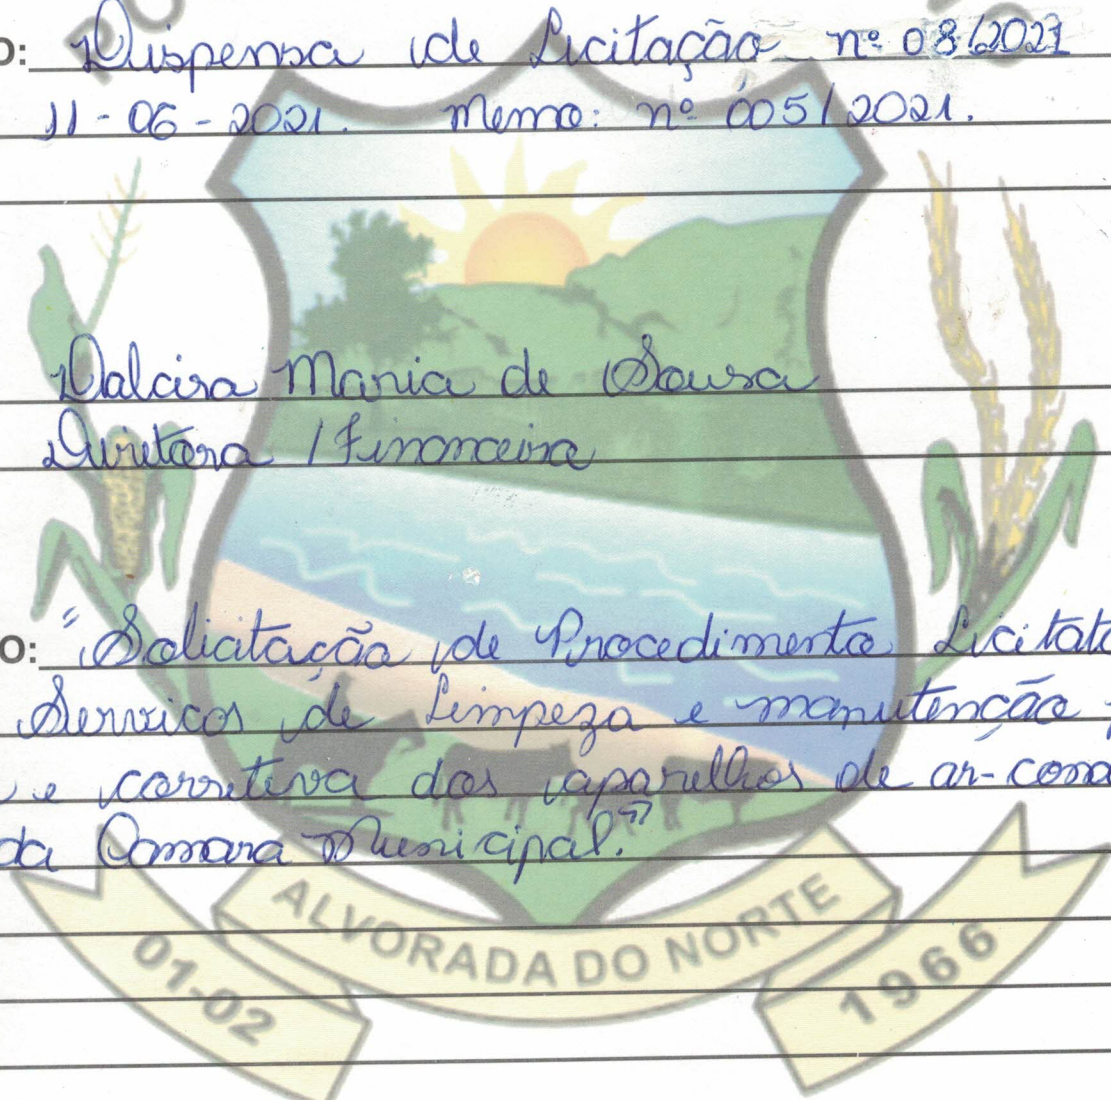 O: Dispensa de Licitação nº 08/2021
11-06-2021. Memo: nº 005/2021.
Dalcira Maria de Sousa
Diretora / Financeira
O: "Solicitação de Procedimento Licitató
Serviços de Limpeza e manutenção
e corretiva dos aparelhos de ar-con
da Camara Municipal."
ALVORADA DO NORTE
01-02
1966